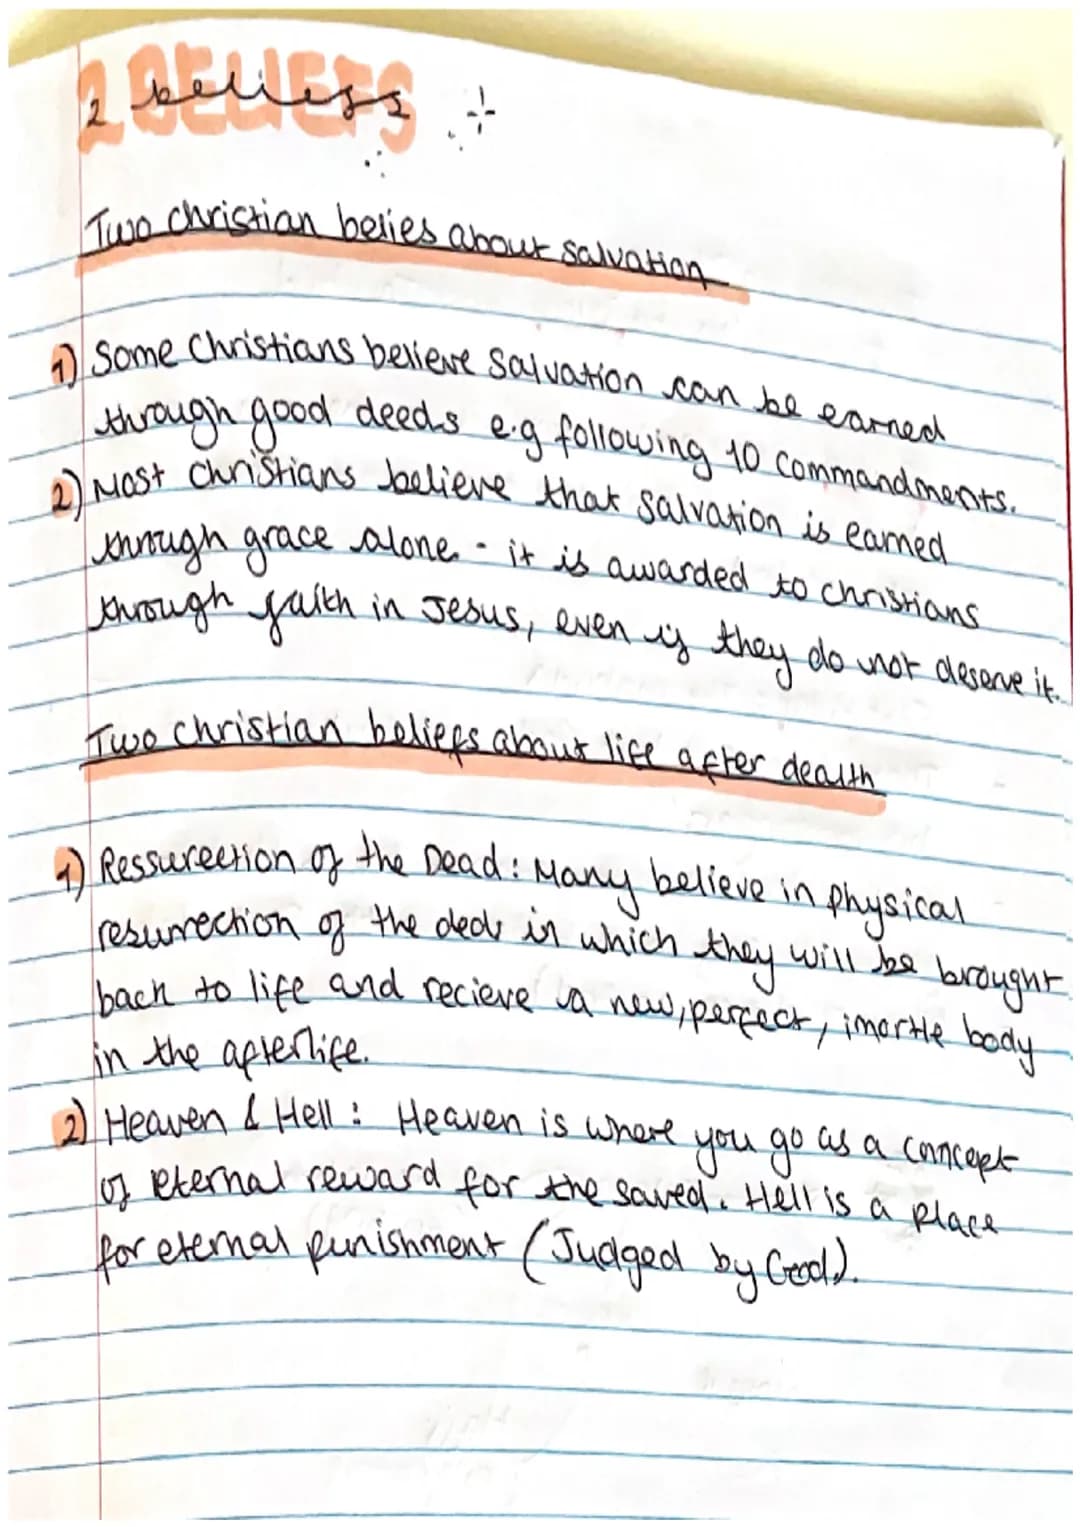 2 BELIEFS
2 beliefs
Two christian belies about salvation
1) Some Christians believe Salvation can be earned
through good deeds e.g following 10 commandments.
2) Most Christians believe that salvation is earned
through grace alone - it is awarded to christians
through faith in Jesus, even if they do not deserve it.
Two christian beliefs about life after death
1) Ressurection of the Dead: Many believe in physical
resurrection of the ded in which they will be brought
back to life and recieve a new, perfect, imortle body
in the afterlife.
2) Heaven & Hell: Heaven is where you go as a concept
of eternal reward for the saved. Hell is a place
for eternal punishment (Judged by God).